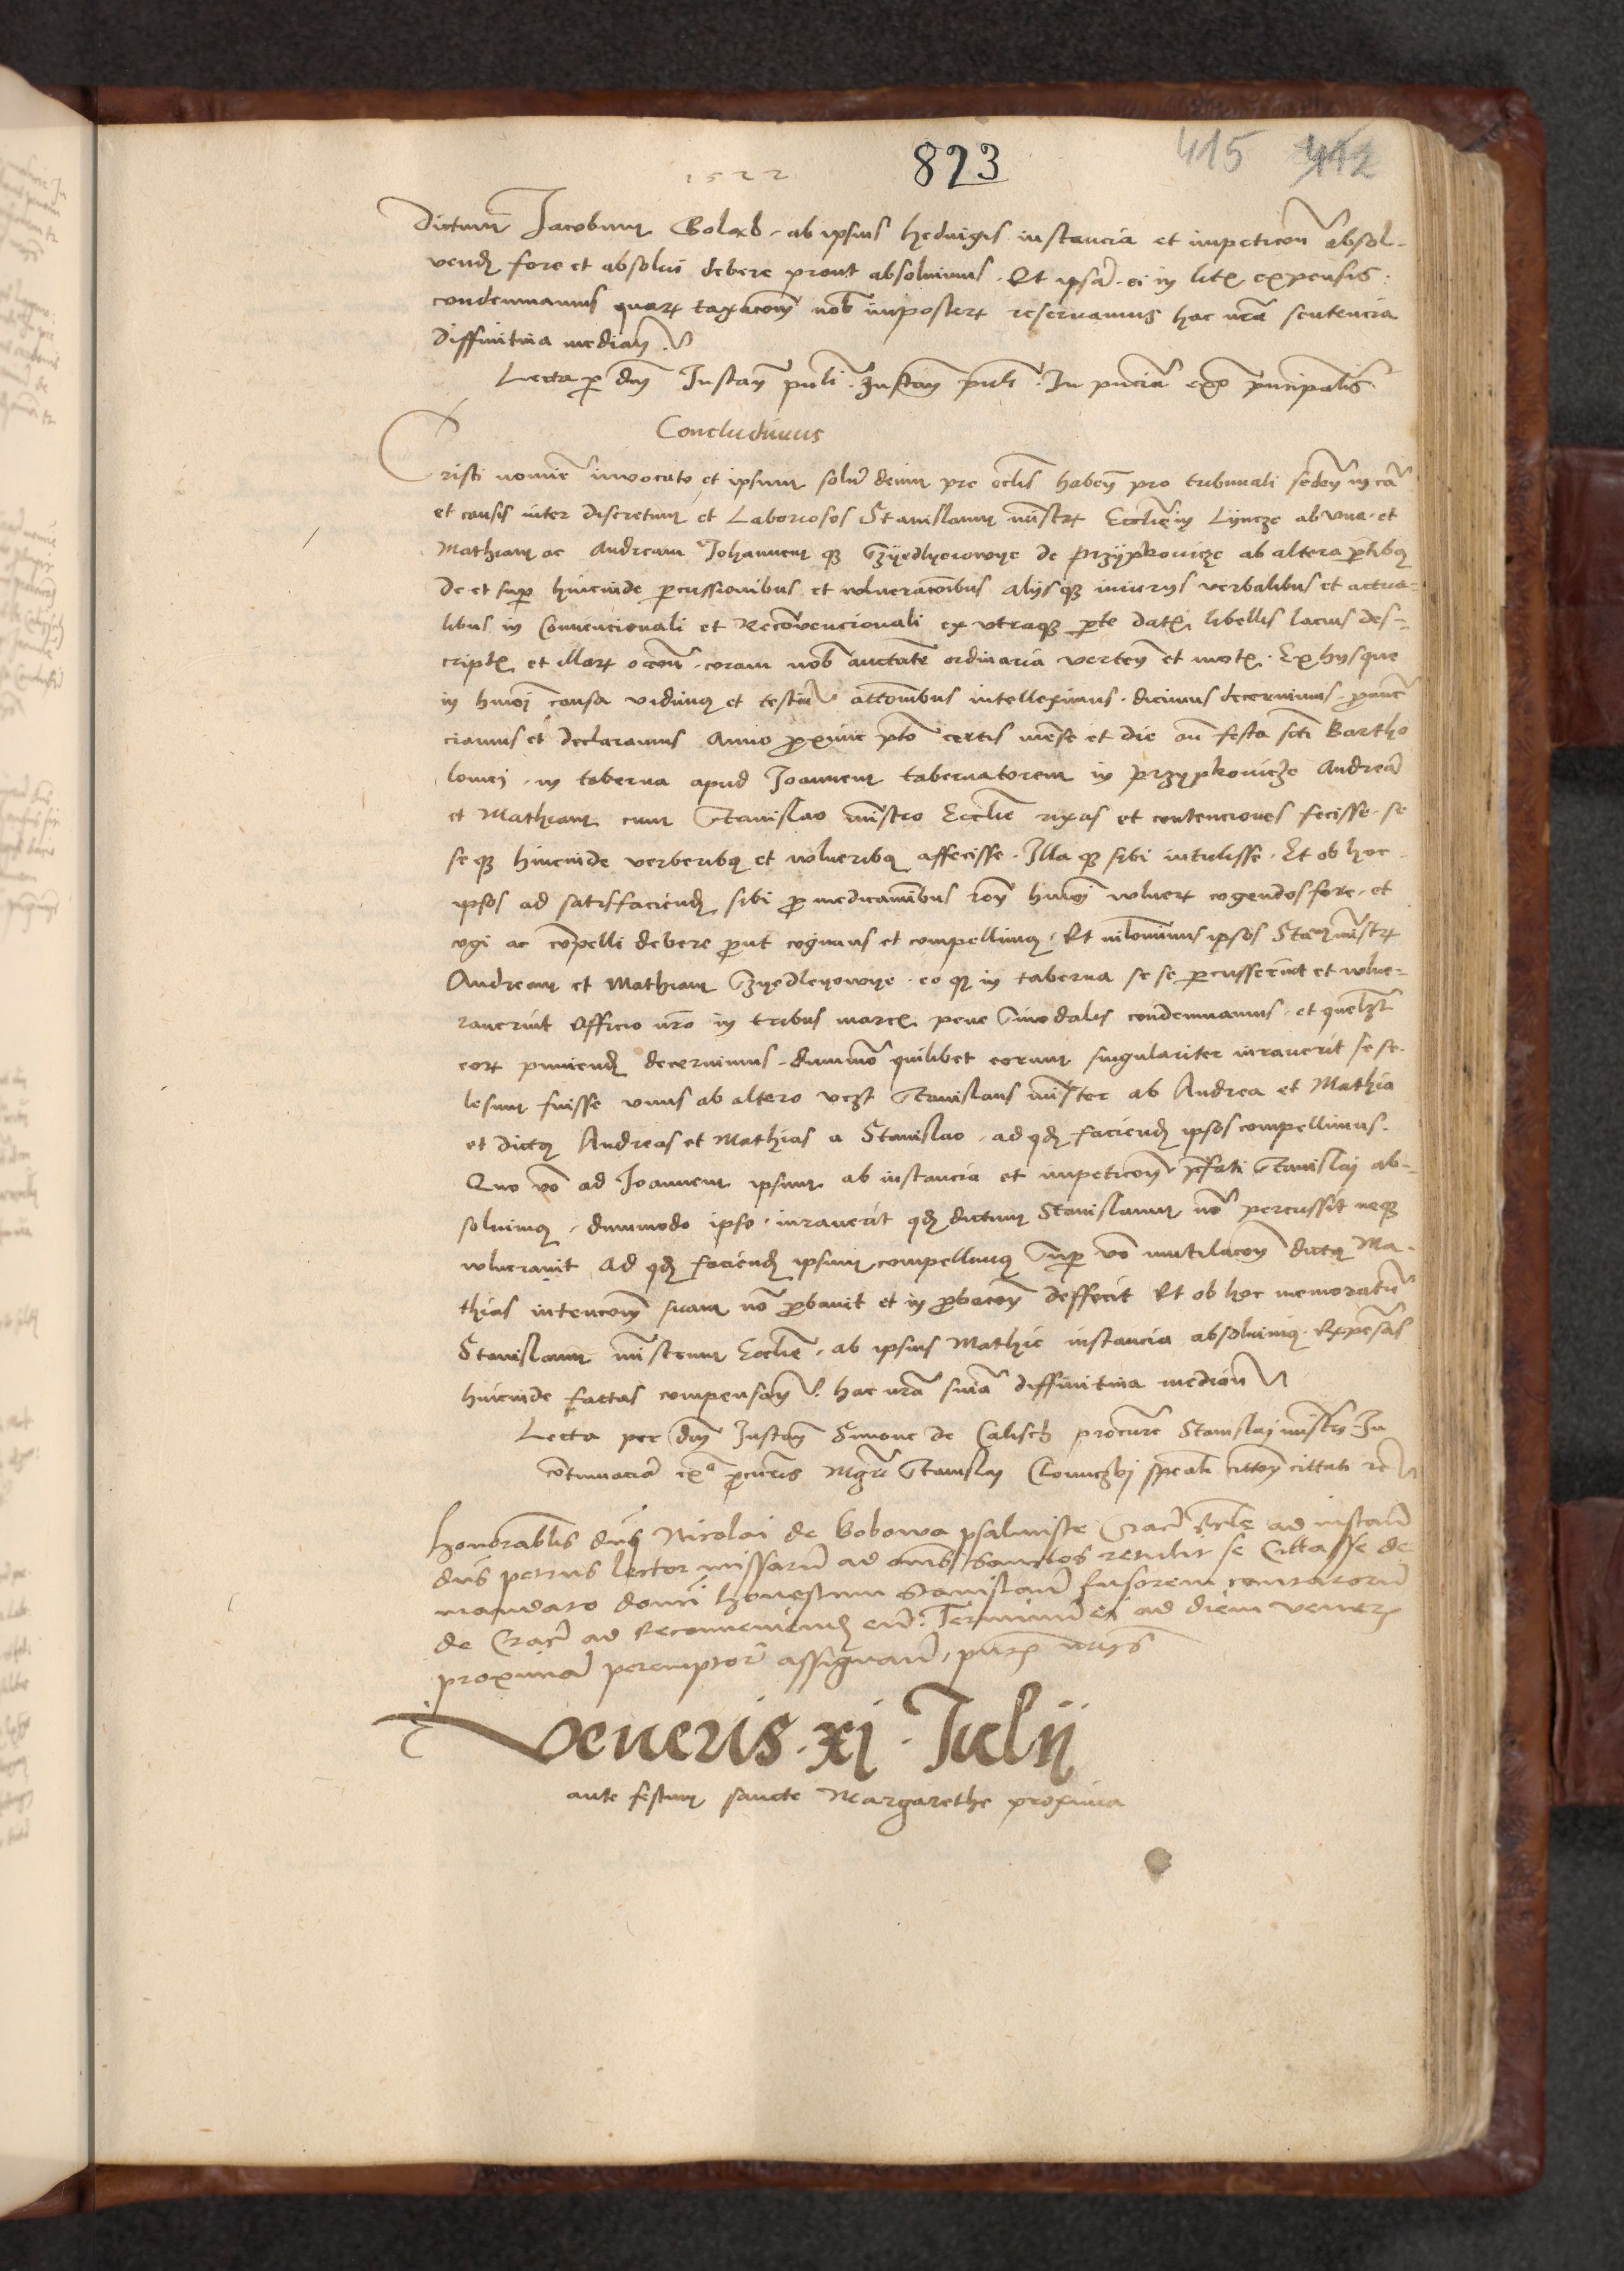 1522 823 415 412
dictum Jacobum Golab ab ipsius hedwigis instancia et impeticon absol-
vend fore et absolui debere prout absoluimus. Et ipsam ei in litis expensis
condemnamus quarum taxacom nob imposterum reseruamus hac nra sentencia
diffinitiua median
Lecta p dnm Instan puli Instan puli In pncia exo pncipalis
Concludimus
Cristi nomie inuocato et ipsum solum deum pre oclis haben pro tribunali seden in ca
et causis inter discretum et Laboriosos Stanislaum ministrum Ecclie in Lyncze ab vna et
Mathiam ac Andream Johannem q Gzyedlyorowye de Przypkowicze ab altera ptibus
de et sup hincinde pcussionibus et wlneracoibus alijsq iniurijs verbalibus et actua-
libus in Conuencionali et Reconuencionali ex vtraq pte datis libellis lacius des-
criptis et illarum occon coram nob auctate ordinaria verten et motis. Ex hysque
in hmoi causa vidimus et testium attonibus intelleximus dicimus decernimus pnun
ciamus et declaramus Anno proxime pto certis mense et die an festa scti Bartho
lomei in taberna apud Joannem tabernatorem in Przypkowicze Andream
et Mathiam cum Stanislao mistro Ecclie rixas et contenciones fecisse se
se q hincinde verberibus et wlneribus affecisse. Illa q sibi intulisse. Et ob hoc
ipsos ad satisfaciend sibi p medicaminibus hmoi wlnerum cogendos fore et
cogi ac compelli debere put cogimus et compellimus. Et nilominus ipsos Stan mistrum
Andream et Mathiam Gzyedleyowye eo q in taberna se se pcusserint et wlne-
rauerint Officio nro in tribus marcis pene Sinodalis condemnamus et quelibet
eorum puniend decernimus dummo quilibet eorum singulariter iurauerit se se
lesum fuisse vnus ab altero vczt Stanislaus minister ab Andrea et Mathia
et dictus Andreas et Mathias a Stanislao ad qd faciend ipsos compellimus.
Quo vo ad Joannem ipsum ab instancia et impeticom pfati Stanislaj ab-
soluimus dummodo ipse iurauerit qd dictum Stanislaum no percussit neq
wlnerauit Ad qd faciend ipsum compellimus Sup vo mutilacom dictus Ma-
thias intencom suam no pbauit et in pbacom deffecit Et ob hoc memoratum
Stanislaum ministrum Ecclie ab ipsius Mathie instancia absoluimus Expensas
hincinde factas compensam hac nra snia diffinitiua median
Lecta per dnm Instan Simone de Calisch procure Stanislaj mistri In
contumacia exo pcuris Mgri Stanislaj spealr cittati
honorabilis dns Nicolai de bobowa psalmiste Crac Ecle ad instam
dns petrus lector missarum ad omes sanctos retulit se Cittasse de
mandato domi honestum Stanislaum fusorem
de Crac ad Reconueniend eum Terminum ei ad diem veneris
proximam peremptor assignam, putis
Veneris xj Julij
ante festum sancte Margarethe proxima